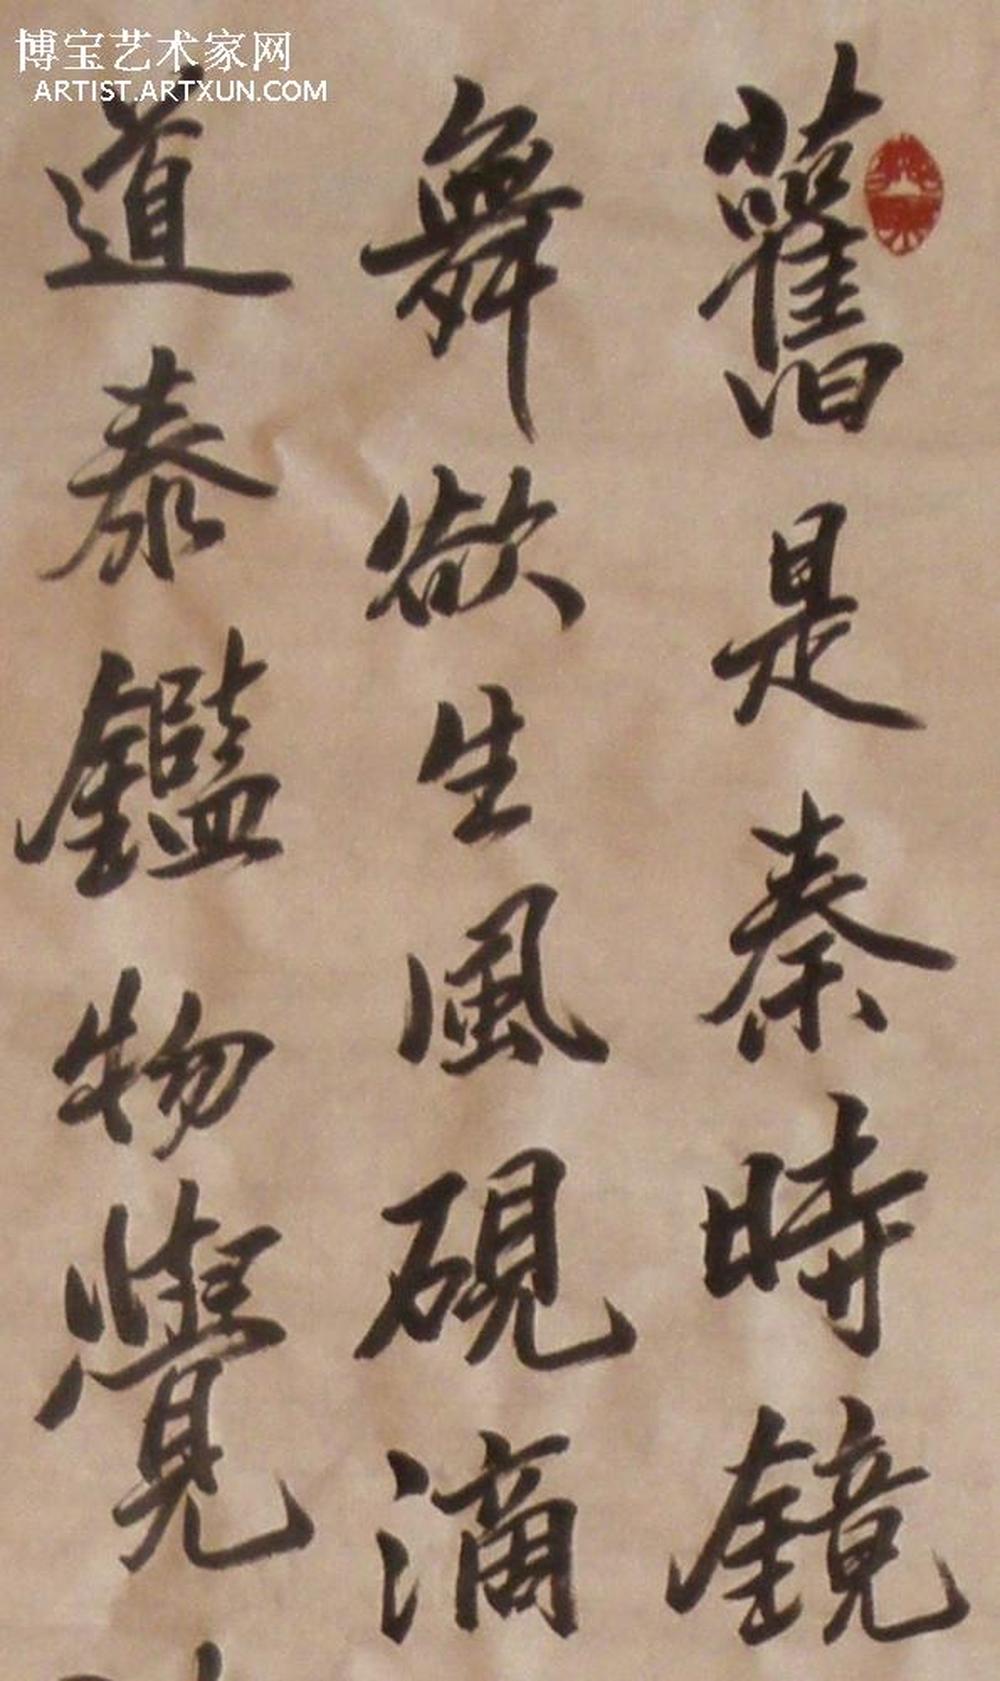 博宝艺术家网
ARTIST.ARTXUN.COM
舊是秦時鏡
舞欲生風硯滴
道泰鑑物覺